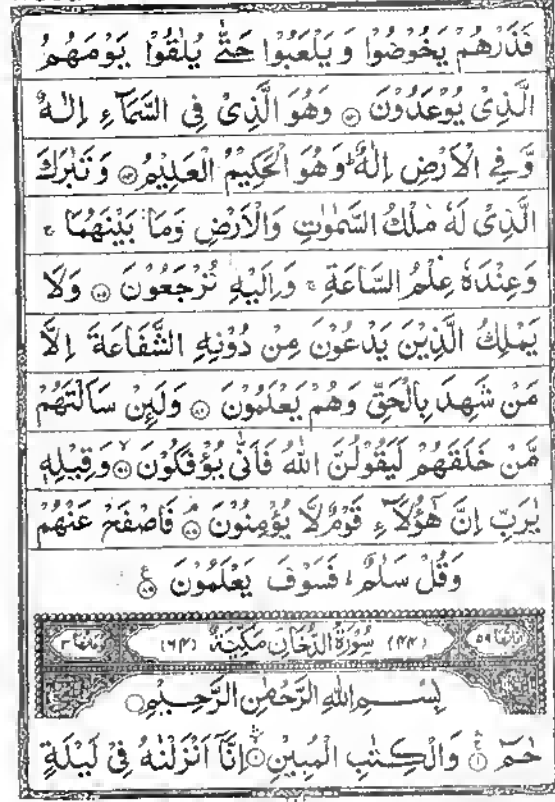 فَذَرْهُمْ يَخُوْضُوْا وَ يَلْعَبُوْا حَتّٰى يُلٰقُوْا يَوْمَهُمُ
الَّذِىْ يُوْعَدُوْنَ ۝۸۳ وَهُوَ الَّذِىْ فِى السَّمَآءِ اِلٰهٌ
وَّ فِى الْاَرْضِ اِلٰهٌ ؕ وَهُوَ الْحَكِيْمُ الْعَلِيْمُ ۝۸۴ وَ تَبٰرَكَ
الَّذِىْ لَهٗ مُلْكُ السَّمٰوٰتِ وَالْاَرْضِ وَمَا بَيْنَهُمَا ۚ
وَعِنْدَهٗ عِلْمُ السَّاعَةِ ۚ وَاِلَيْهِ تُرْجَعُوْنَ ۝۸۵ وَلَا
يَمْلِكُ الَّذِيْنَ يَدْعُوْنَ مِنْ دُوْنِهِ الشَّفَاعَةَ اِلَّا
مَنْ شَهِدَ بِالْحَقِّ وَهُمْ يَعْلَمُوْنَ ۝۸۶ وَلَئِنْ سَاَلْتَهُمْ
مَّنْ خَلَقَهُمْ لَيَقُوْلُنَّ اللّٰهُ فَاَنّٰى يُؤْفَكُوْنَ ۝۸۷ۙ وَقِيْلِهٖ
يٰرَبِّ اِنَّ هٰٓؤُلَآءِ قَوْمٌ لَّا يُؤْمِنُوْنَ ۝۸۸ۘ فَاصْفَحْ عَنْهُمْ
وَقُلْ سَلٰمٌ ؕ فَسَوْفَ يَعْلَمُوْنَ ۝۸۹ ع
اٰيَاتُهَا ۵۹ (۴۴) سُوْرَةُ الدُّخَانِ مَكِّيَّةٌ (۶۴) رُكُوْعَاتُهَا ۳
بِسْمِ اللّٰهِ الرَّحْمٰنِ الرَّحِيْمِ
حٰمٓ ۝۱ وَالْكِتٰبِ الْمُبِيْنِ ۝۲ اِنَّآ اَنْزَلْنٰهُ فِىْ لَيْلَةٍ